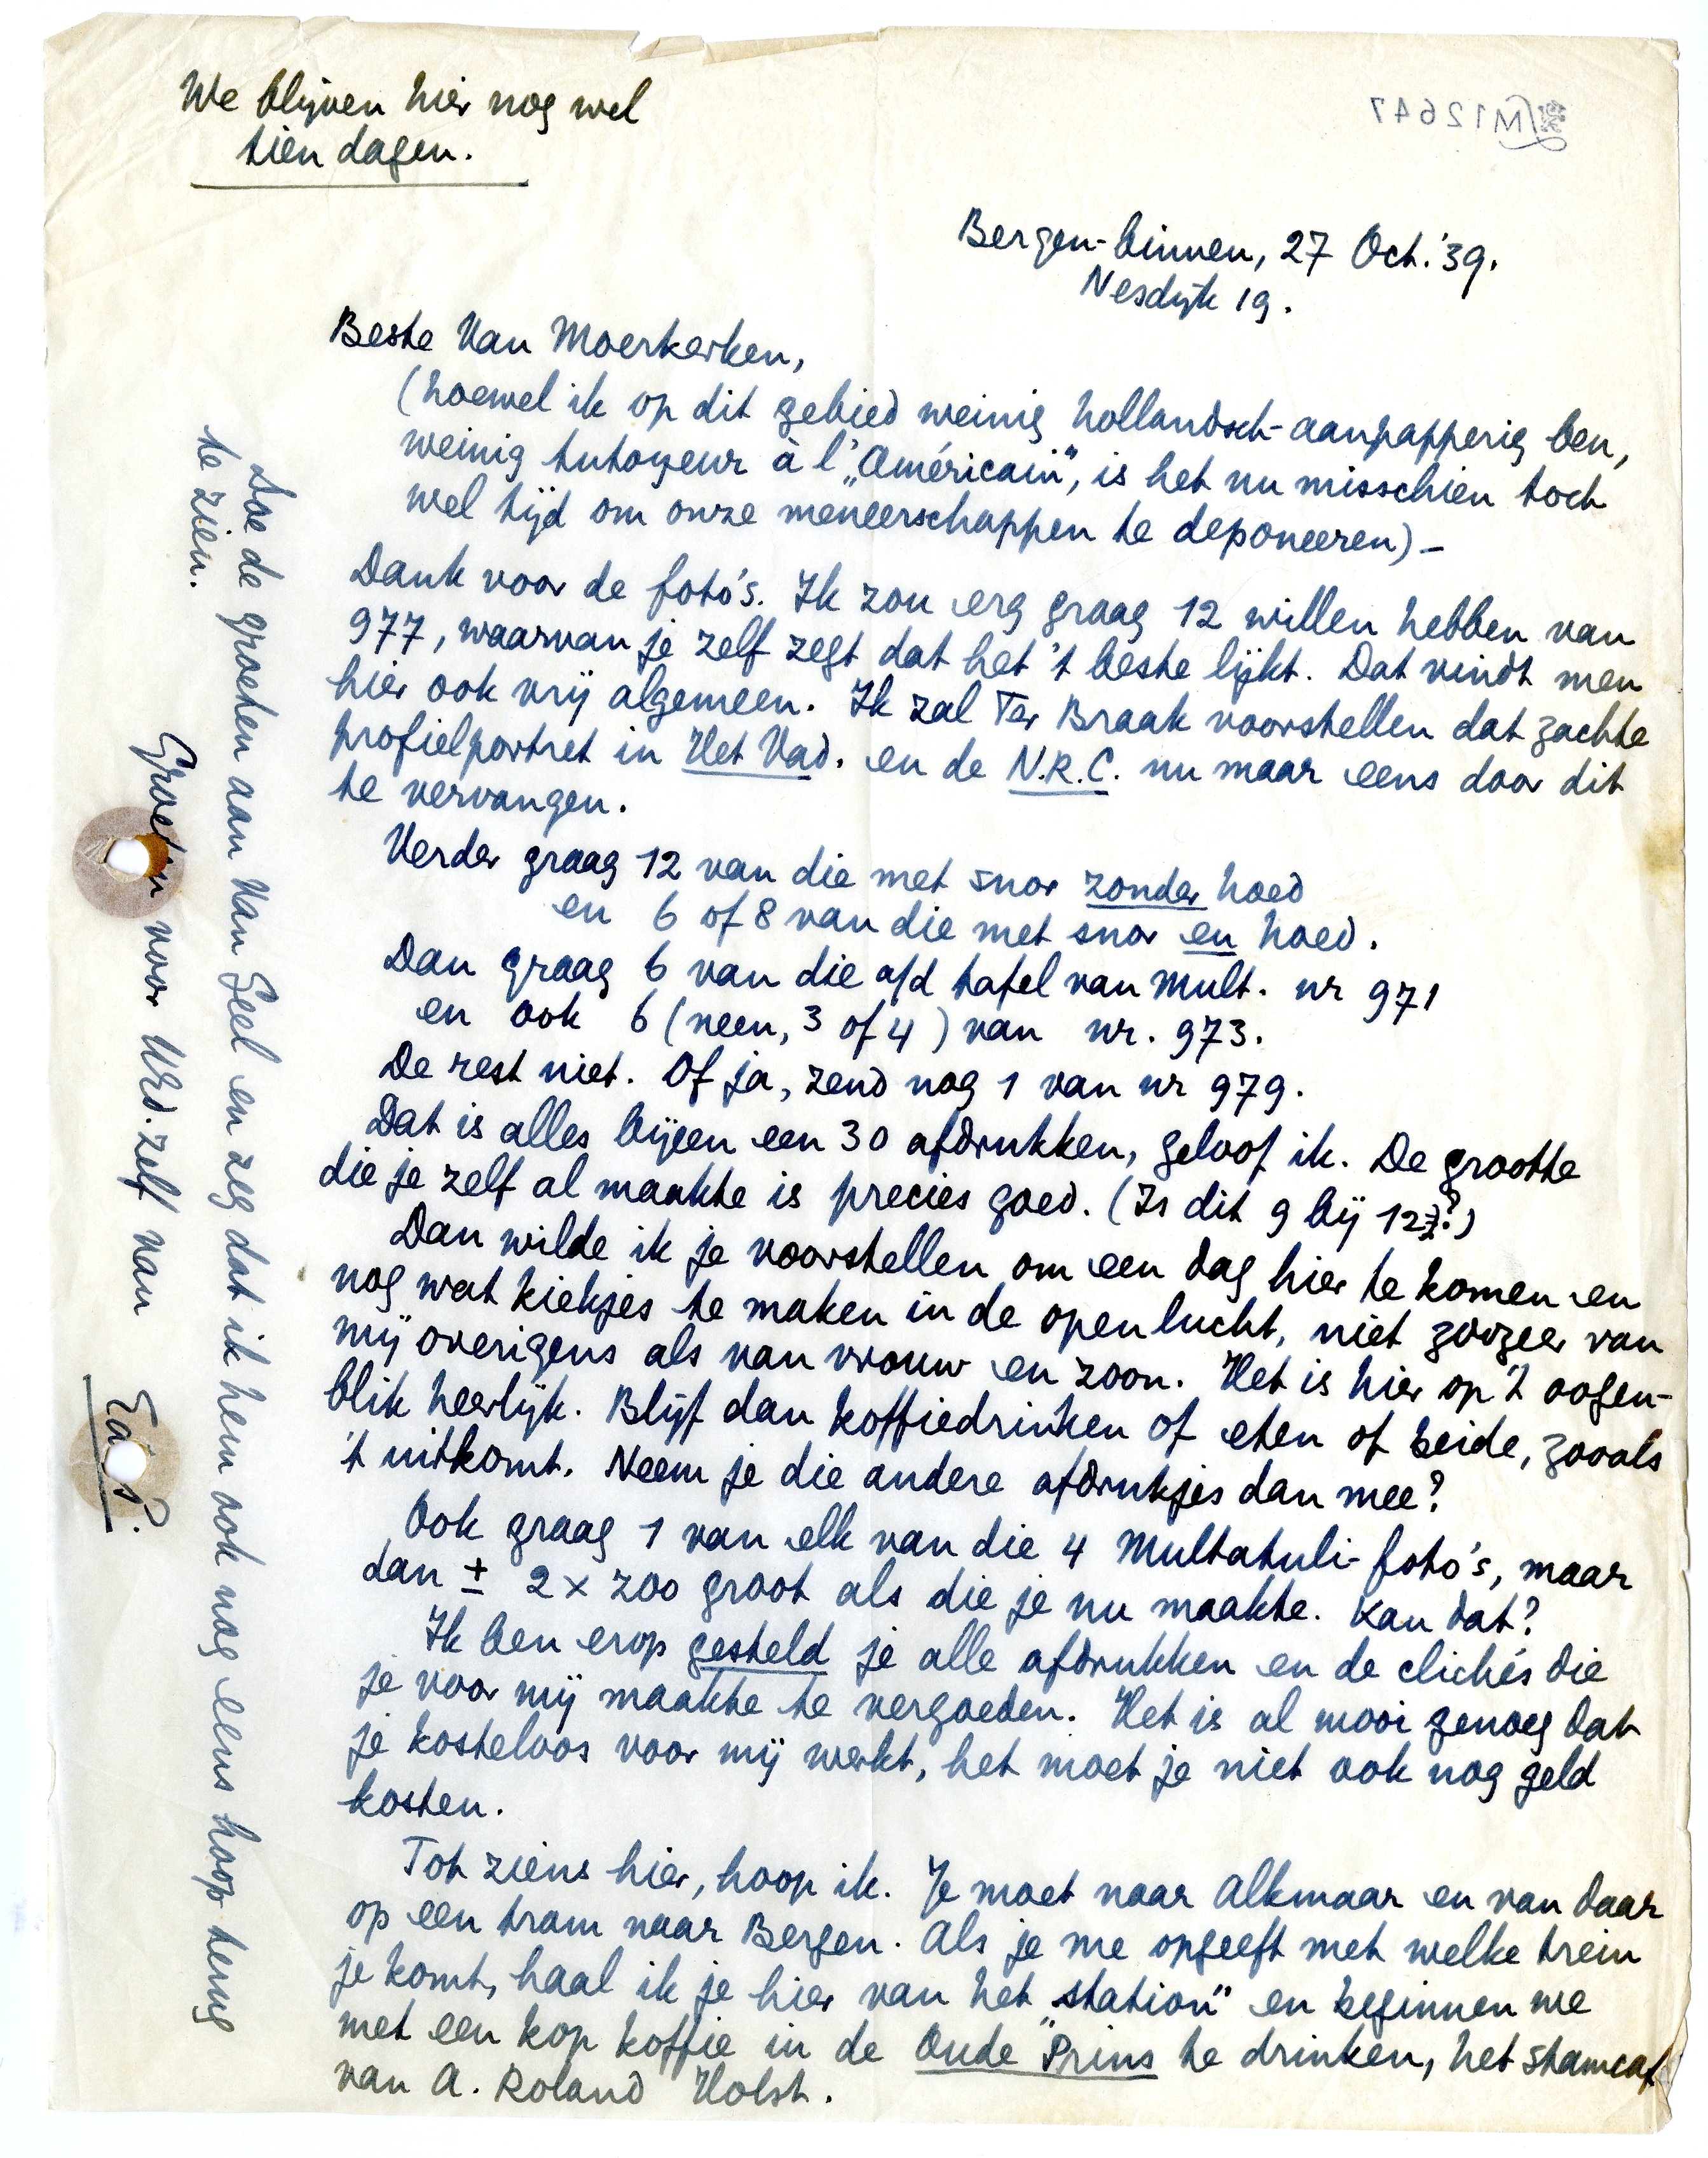 We blijven hier nog wel
tien dagen.
M12647
Bergen-binnen, 27 Oct. '39.
Nesdijk 19.
Beste Van Moerkerken,
(hoewel ik op dit gebied weinig hollandsch-aanpapperig ben,
weinig tutoyeur à l'„Américain", is het nu misschien toch
wel tijd om onze meneerschappen te deponeeren) –
Dank voor de foto's. Ik zou erg graag 12 willen hebben van
977, waarvan je zelf zegt dat het 't beste lijkt. Dat vindt men
hier ook vrij algemeen. Ik zal Ter Braak voorstellen dat zachte
profielportret in Het Vad. en de N.R.C. nu maar eens door dit
te vervangen.
Verder graag 12 van die met snor zonder hoed
en 6 of 8 van die met snor en hoed.
Dan graag 6 van die a/d tafel van Mult. nr 971
en ook 6 (neen, 3 of 4) van nr. 973.
De rest niet. Of ja, zend nog 1 van nr 979.
Dat is alles bijeen een 30 afdrukken, geloof ik. De grootte
die je zelf al maakte is precies goed. (Is dit 9 bij 12?)
Dan wilde ik je voorstellen om een dag hier te komen en
nog wat kiekjes te maken in de open lucht, niet zoozeer van
mij overigens als van vrouw en zoon. Het is hier op 't oogen-
blik heerlijk. Blijf dan koffiedrinken of eten of beide, zooals
't uitkomt. Neem je die andere afdrukjes dan mee?
Ook graag 1 van elk van die 4 Multatuli-foto's, maar
dan ± 2 x zoo groot als die je nu maakte. Kan dat?
Ik ben erop gesteld je alle afdrukken en de clichés die
je voor mij maakte te vergoeden. Het is al mooi genoeg dat
je kosteloos voor mij werkt, het moet je niet ook nog geld
kosten.
Tot ziens hier, hoop ik. Je moet naar Alkmaar en van daar
op een tram naar Bergen. Als je me opgeeft met welke trein
je komt, haal ik je hier van het „station" en beginnen we
met een kop koffie in de Oude Prins te drinken, het stamcaf
van A. Roland Holst.
Doe de groeten aan Van Geel en zeg dat ik hem ook nog eens hoop terug
te zien.
Groeten voor UEd. zelf van
EduP.